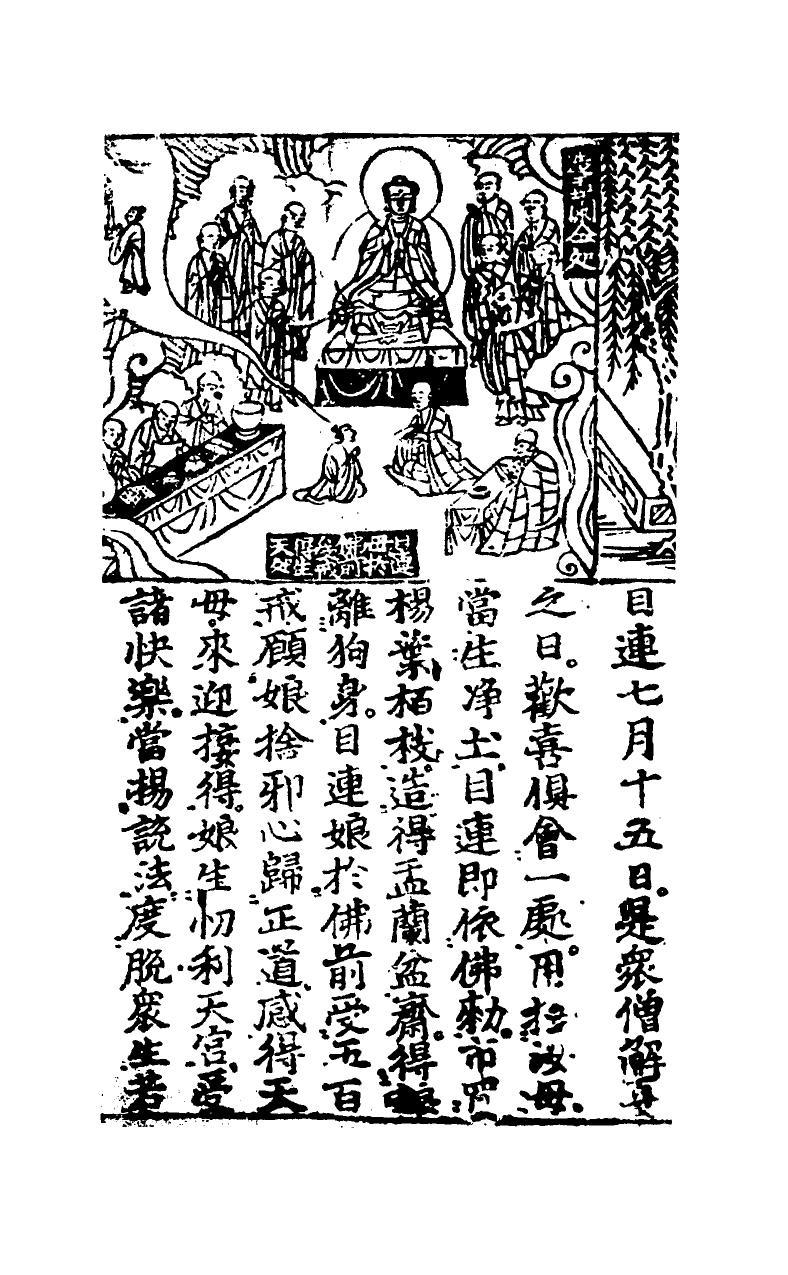 目連母於佛前受戒得生天處
目連七月十五日。是衆僧解夏
之日。歡喜俱會一處。用汝母。
當生净土。目連即依佛勑。市買
楊葉栢枝。造得盂蘭盆齋。得娘
離狗身。目連娘於佛前受五百
戒願娘捨邪心歸正道感得天
母來迎接得。娘生忉利天宮。受
諸快樂。當揚説法度脫衆生若